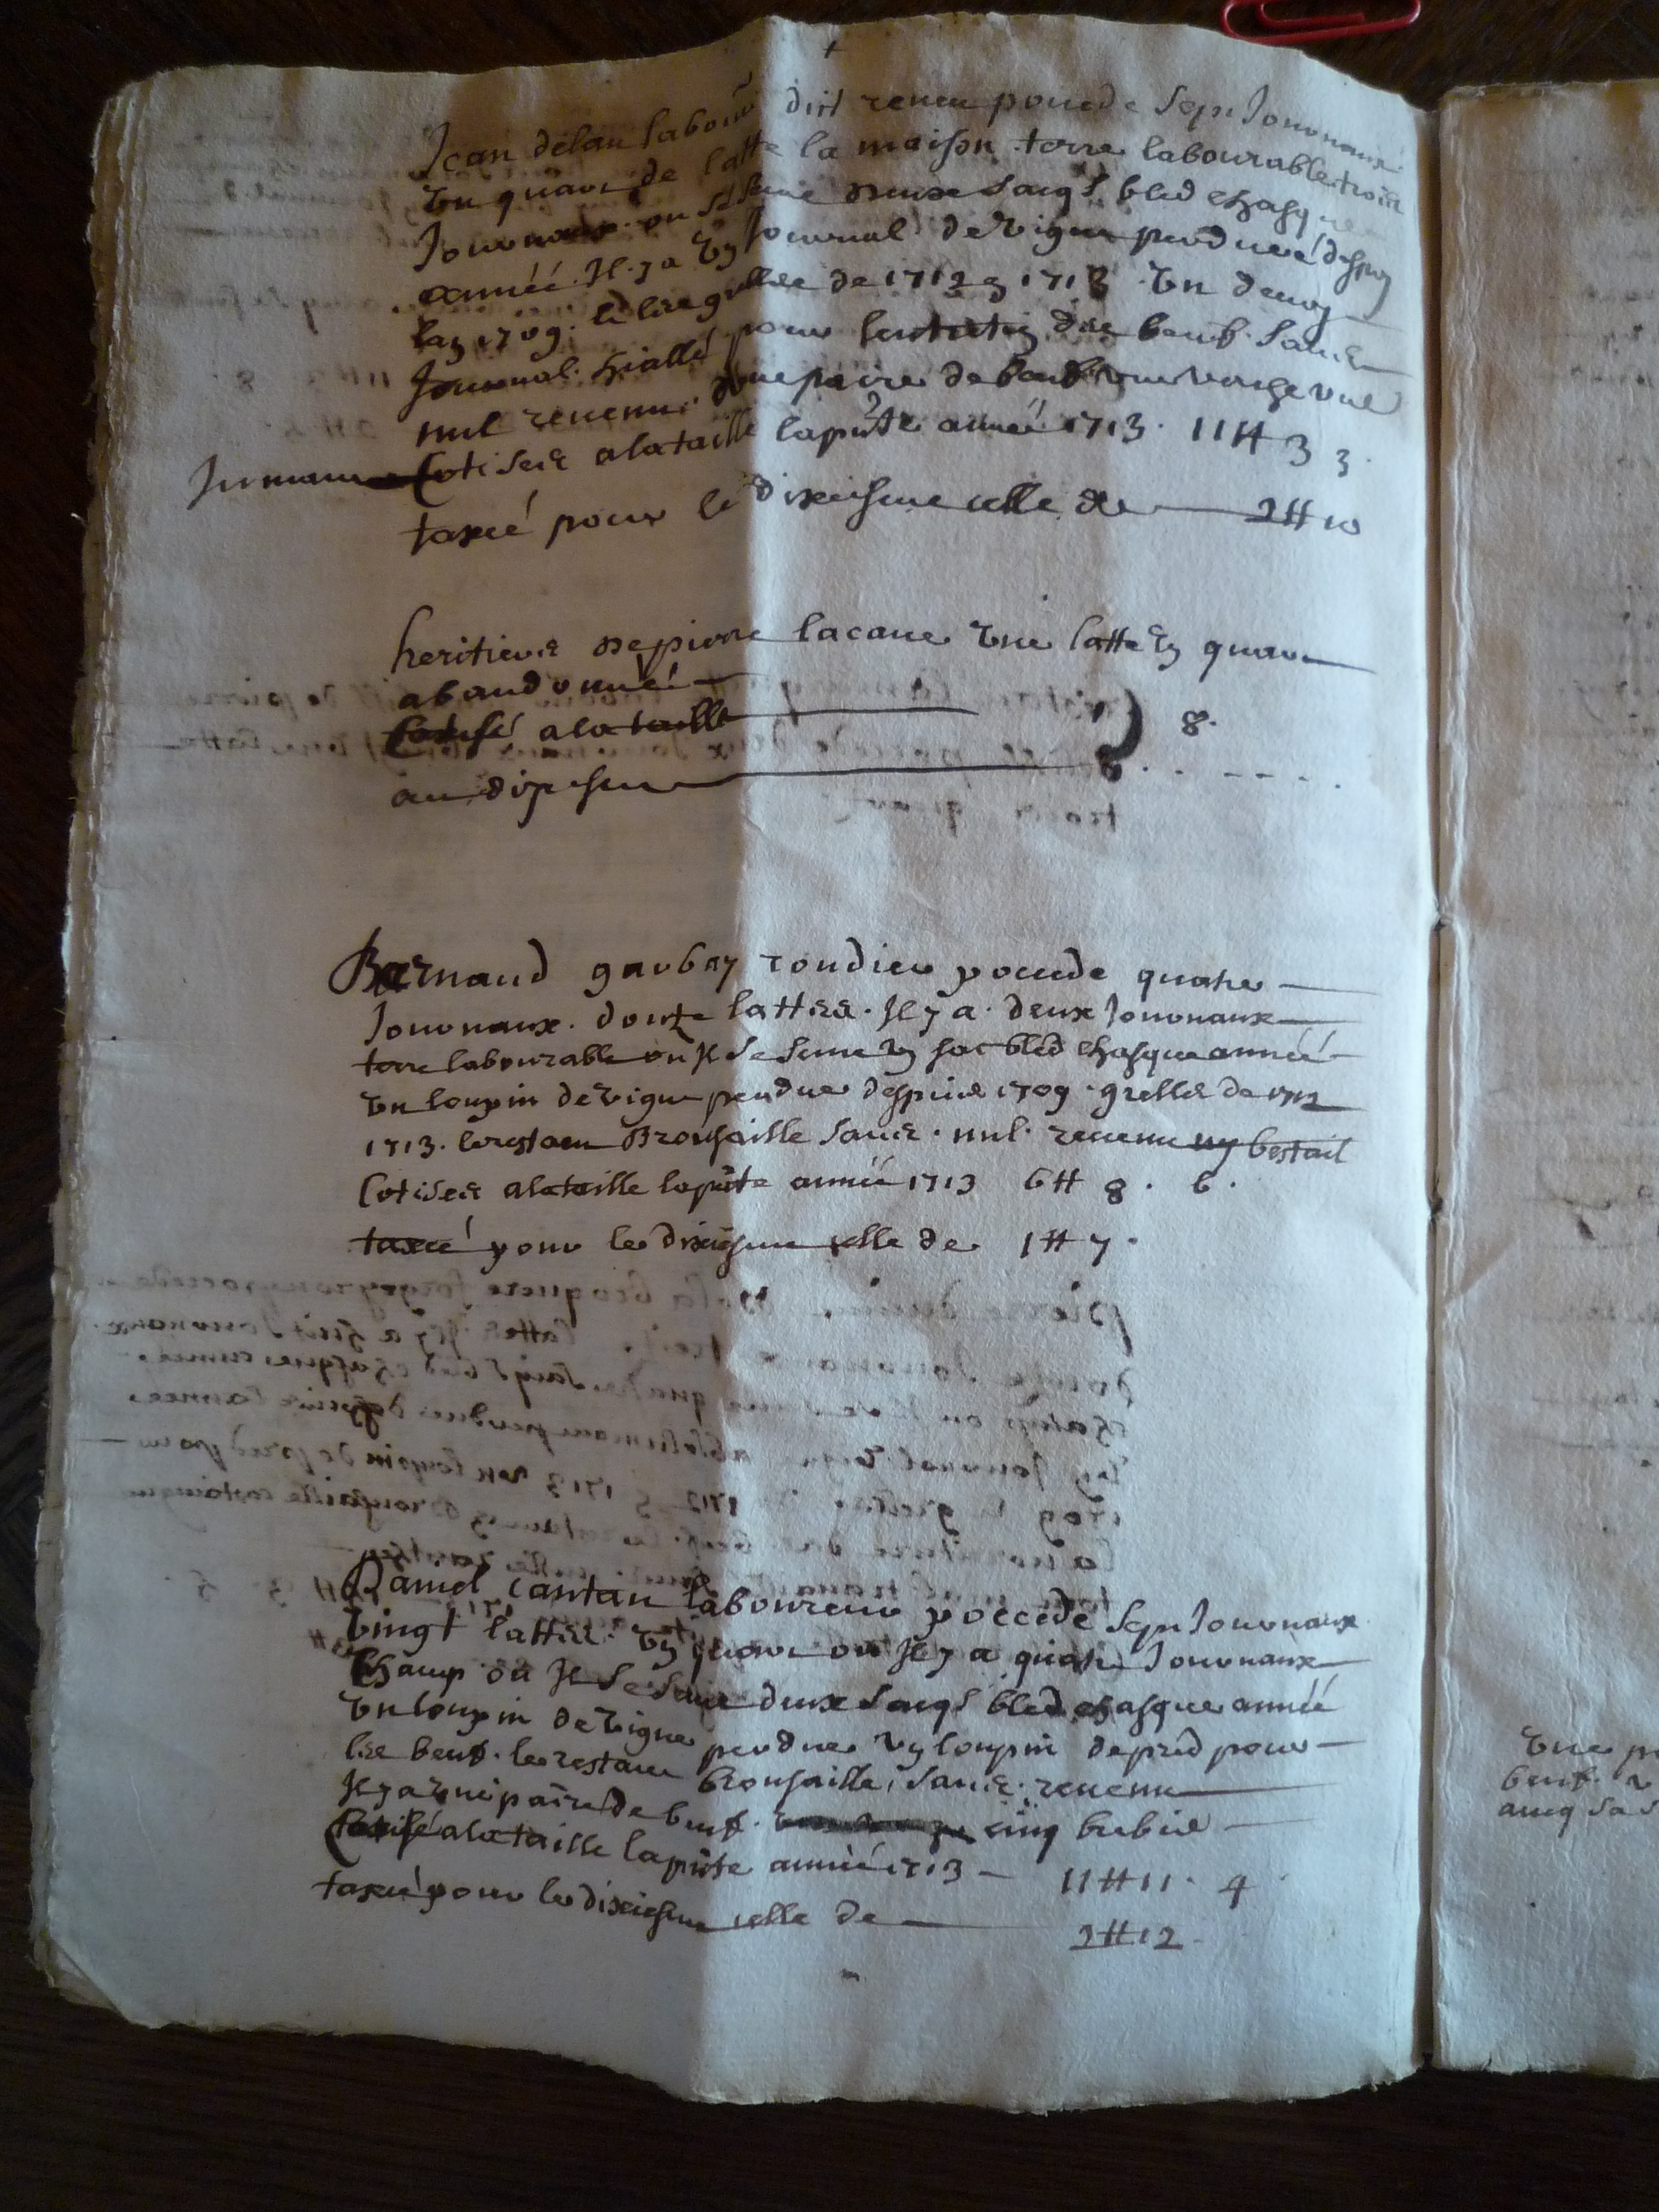 Jean delau labour dict reneu pocede sept Journaux
Un quart de latte la maison terre labourable trois
Journaux ou se seme deux sacqs bled chasque
année Il y a un Journal de vigne perdue despuis
lan 1709 et les greslées de 1712 et 1713 Un demy
Journal pour des beufs sans
nul revenu une paire de beufs une vache
Cotisée a la taille la pnte année 1713. 11 ₶ 3 3
taxcé pour le dixiesme celle de 2 ₶ 10
heritiers de pierre lacaue Une latte un quart
abandonnée
Cotisé a la taille 8.
au dixiesme
Barnaud gaubay rondieu pocede quatre
Journaux douze lattes. Il y a deux Journaux
terre labourable ou Il se seme un sac bled chasque année
Un loupin de vigne perdue despuis 1709. greslée de 1712
1713. le restant Brousaille sans nul revenu ny bestail
Cotisée a la taille la pnte année 1713 6 ₶ 8. 6.
taxcé pour le dixiesme celle de 1 ₶ 7.
Daniel cantau laboureur poccede sept Journaux
vingt lattes un quart ou Il y a quatre Journaux
champ ou Il se seme deux sacqs bled chasque année
Un loupin de vigne perdue un loupin de pred pour
les beufs le restant brousaille, sans revenu
Il y a une paire de beufs cinq brebis
Cotisé a la taille la pnte année 1713 11 ₶ 11. 4
taxcé pour le dixiesme celle de
2 ₶ 12
Une
beufs